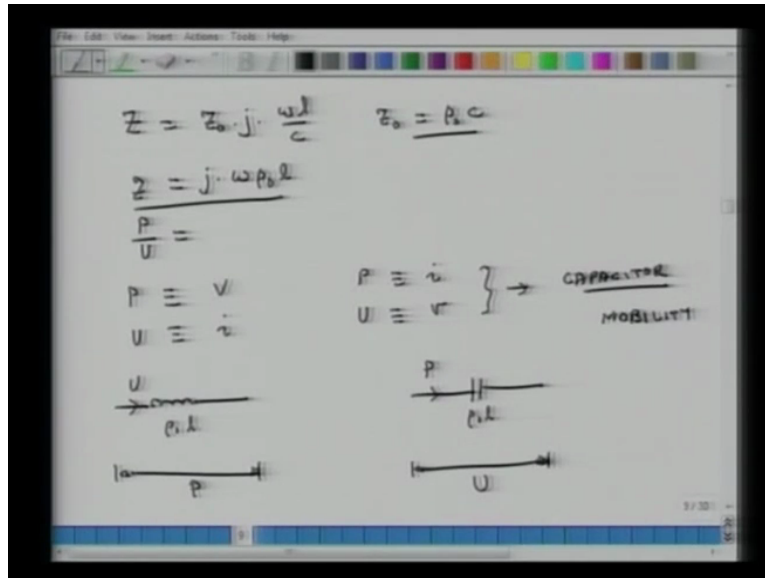 File Edit View Insert Actions Tools Help
Z = Z₀ · j · ωl/c    Z₀ = ρ₀ c
Z = j · ωρ₀l
P/U =
P ≡ V    P ≡ i } → CAPACITOR
U ≡ i    U ≡ v    MOBILITY
U    P
ρ₀l    ρ₀l
P    U
9 / 30
9